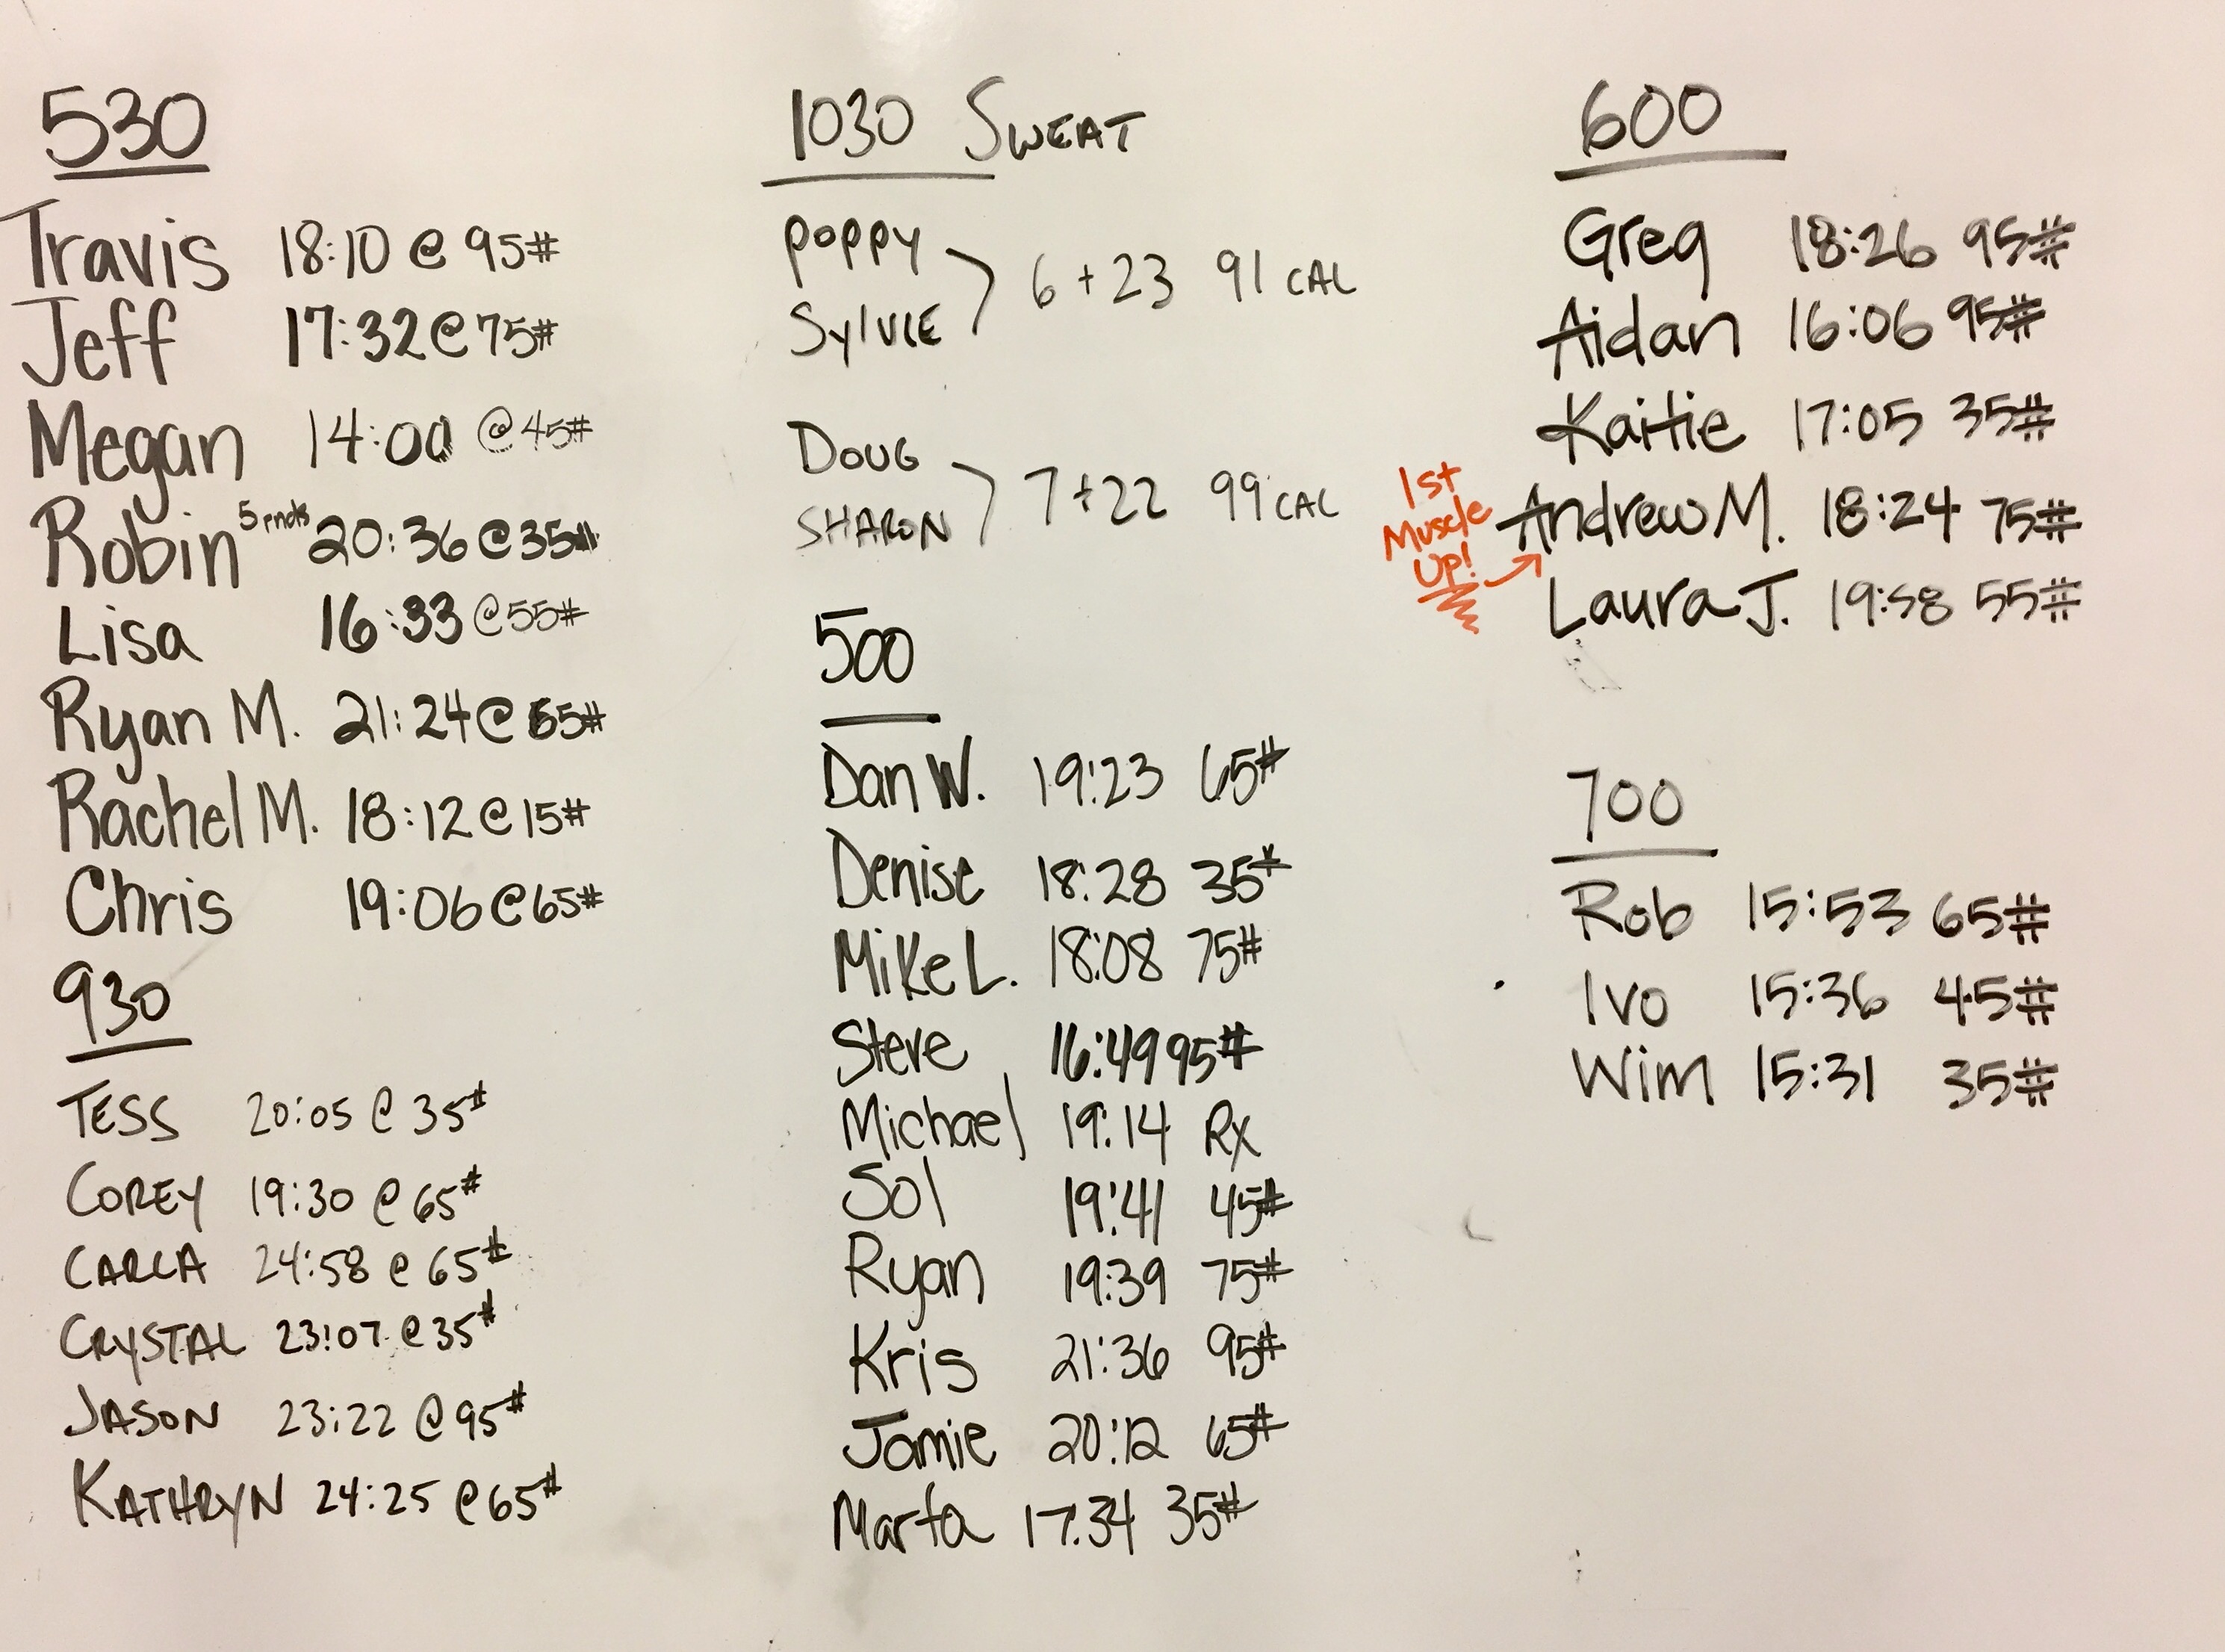 530
Travis 18:10 @ 95#
Jeff 17:32 @ 75#
Megan 14:00 @ 45#
Robin 5 rnds 20:36 @ 35#
Lisa 16:33 @ 55#
Ryan M. 21:24 @ 55#
Rachel M. 18:12 @ 15#
Chris 19:06 @ 65#
930
TESS 20:05 @ 35#
COREY 19:30 @ 65#
CARLA 24:58 @ 65#
CRYSTAL 23:07 @ 35#
JASON 23:22 @ 95#
KATHRYN 24:25 @ 65#
1030 SWEAT
POPPY
SYLVIE > 6 + 23 91 CAL
DOUG
SHARON > 7 + 22 99 CAL
500
Dan W. 19:23 65#
Denise 18:28 35#
Mike L. 18:08 75#
Steve 16:49 95#
Michael 19:14 Rx
Sol 19:41 45#
Ryan 19:39 75#
Kris 21:36 95#
Jamie 20:12 65#
Marta 17:34 35#
600
Greg 18:26 95#
Aidan 16:06 95#
Kaitie 17:05 35#
1st
Muscle
Up! →
Andrew M. 18:24 75#
Laura J. 19:58 55#
700
Rob 15:53 65#
Ivo 15:36 45#
Wim 15:31 35#